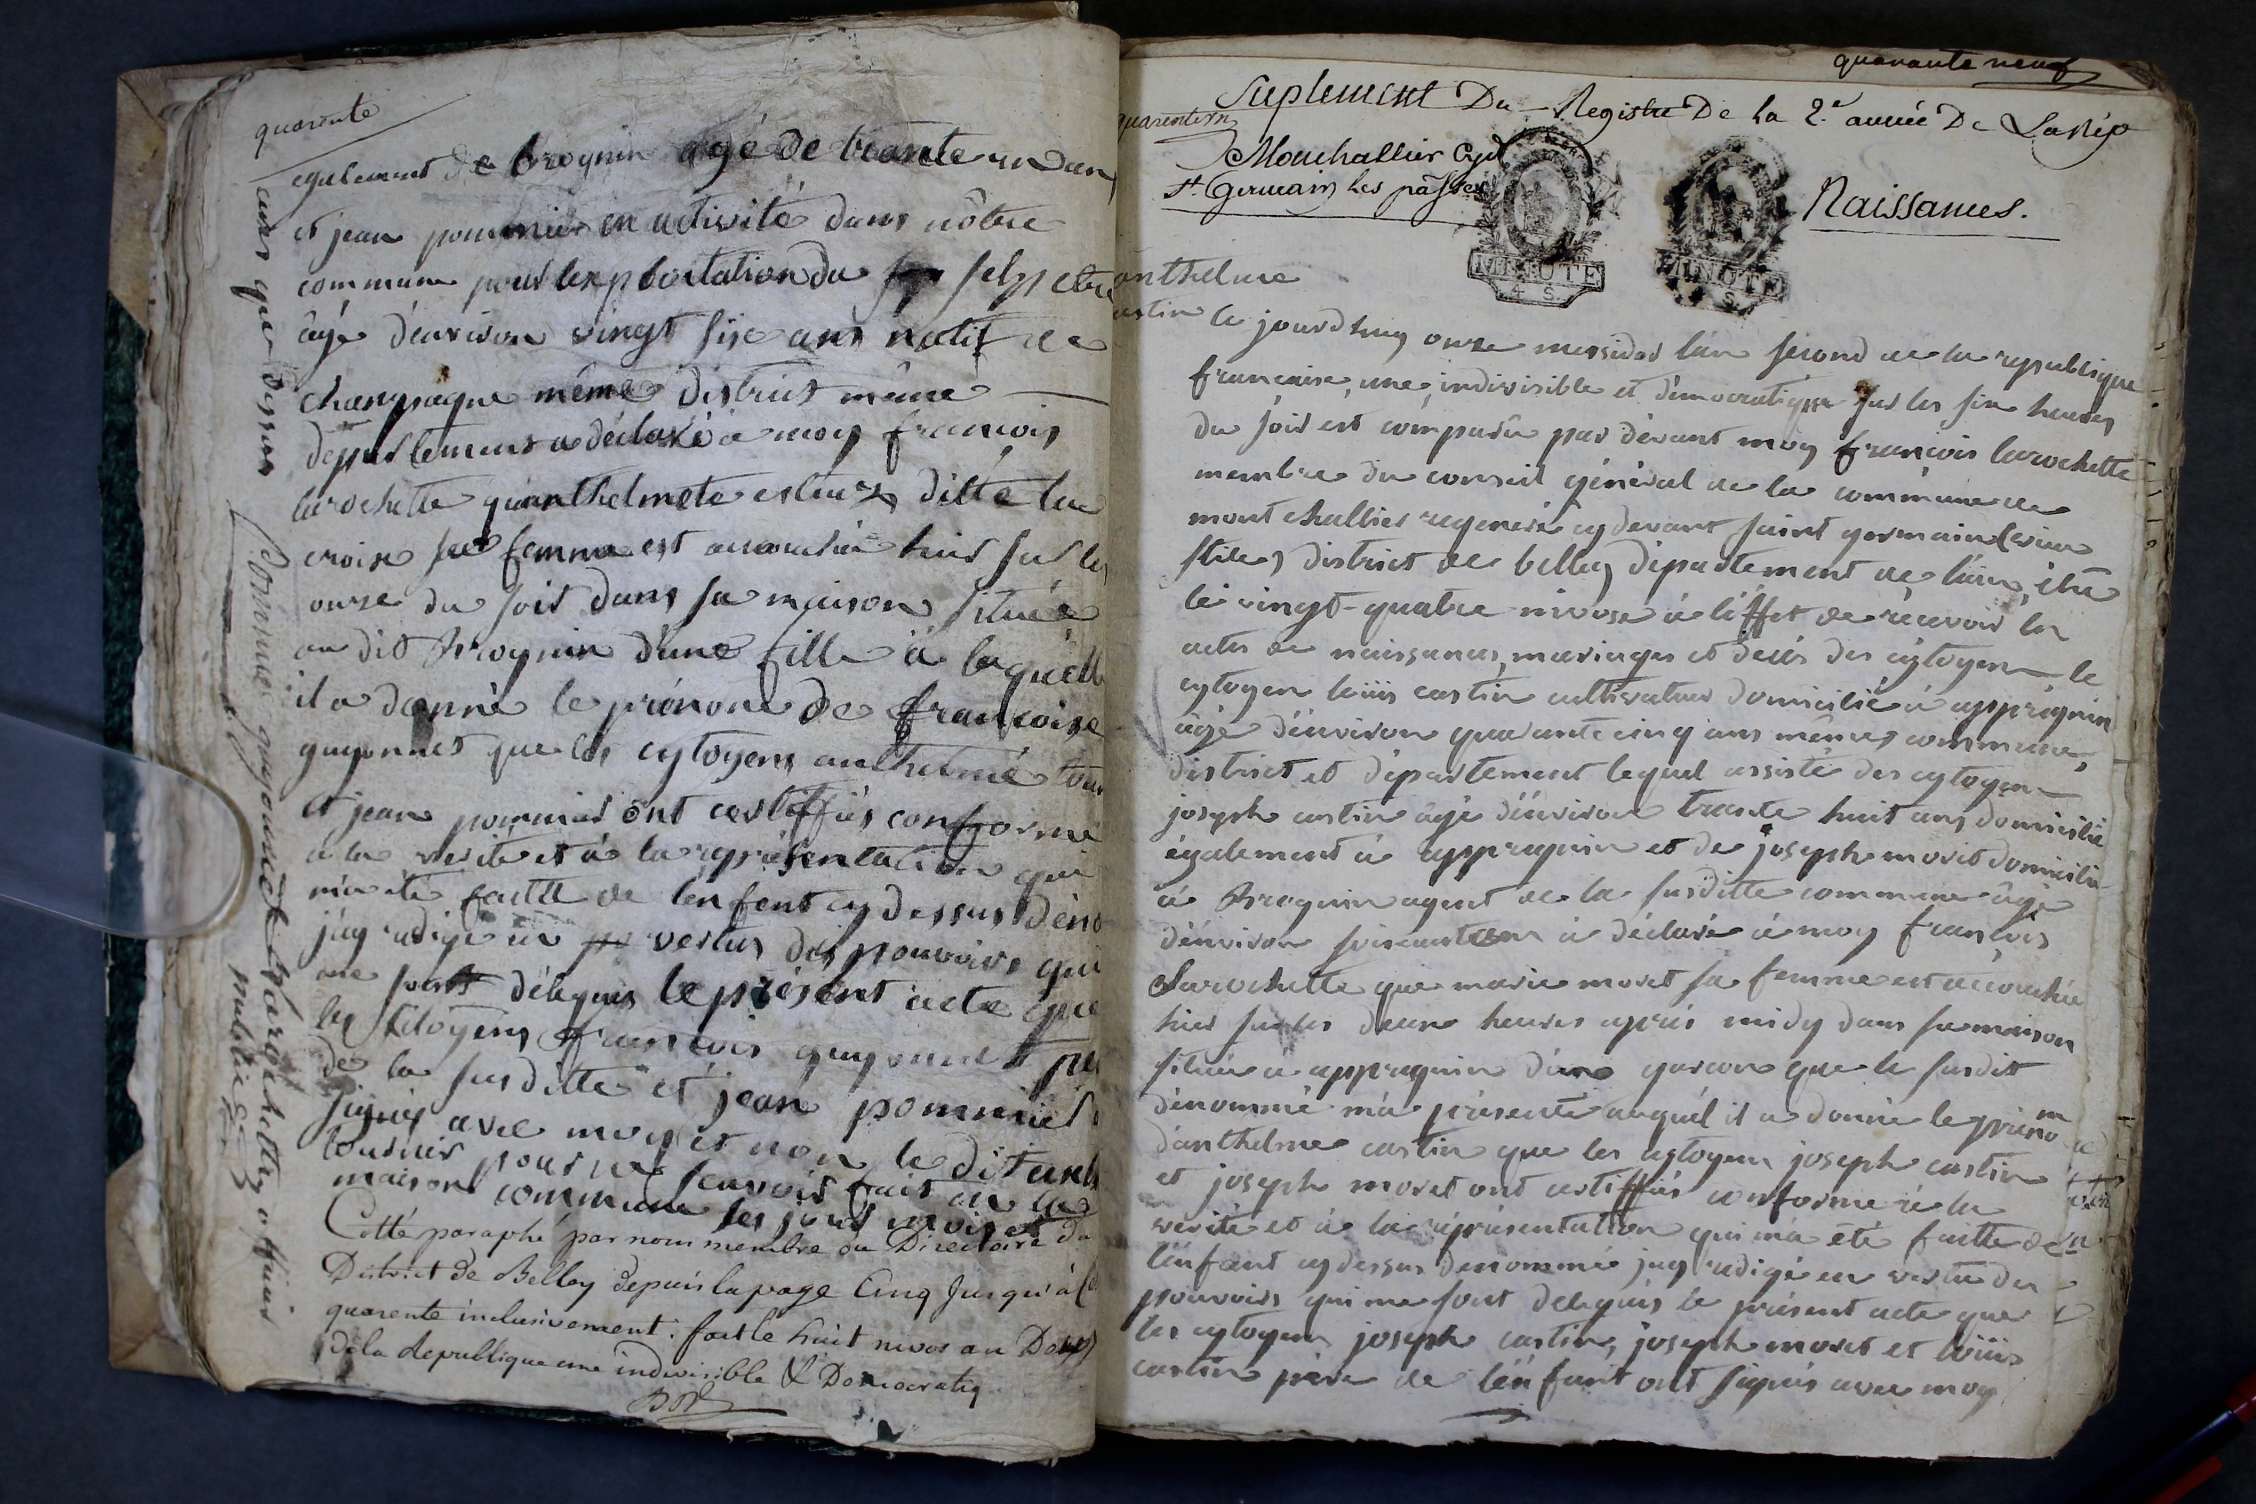 quarente
egalement de brognin agé de trante un ans
et jean pommier en activité dans nôtre
commune pour lexploitation du salpetre
âgé d'environ vingt six ans natif de
champagne même district même
departement a déclaré à moy francois
larochette qu'anthelmete ditte la
croix sa femme est accouchée hier sur les
onze du soir dans sa maison située
au dit brognin d'une fille à laquelle
il a donné le prénom de francoise
guyonnet que les cytoyens anthelme
et jean pommier ont certiffiés conforme
a la verité et à la représentation qui
m'a été faitte de l'enfent cy dessus déno
j'ay redigé en vertus des pouvoirs qui
me sonts délegués le présent acte que
les citoyens francois guyonnet
de la susditte et jean pommier
signés avec moy et non le dit anth
tournier pour ne scavoir fait en la
maison commune les jour mois et
ans que dessus
pommier guyonnet larochette officier
public
Cotté paraphé par nous membre du Directoire du
District de Belley depuis la page Cinq Jusqu'à
quarente inclusivement : fait le huit nivos an Deux
de la Republique une indivisible & Democratiq
quarante neuf
quarente un
Suplement Du Registre De la 2.e année De La Rép
Mouchallier Cyd
St Germain les pasr
Naissances.
MINUTE
4 S.
MINUTE
S.
anthelme
castin
le jourdhuy onze messidor l'an second de la republique
francaise, une, indivisible et démocratique sur les six heures
du soir est comparu par devant moy francois larochette
membre du conseil général de la commune de
mont challier regeneré cy devant saint germain (vieux
stile) district de belley département de l'ain, élu
le vingt-quatre nivose à l'éffet de récevoir les
actes de naissances, mariages et décés des cytoyens le
cytoyen loüis castin cultivateur domicilié à appregnin
âgé d'environ quarante cinq ans mêmes commune,
district et département lequel assisté des cytoyens
joseph castin âgé d'environ trante huit ans domicilié
également à appregnin et de joseph moret domicilié
à brognin agent de la susditte commune âgé
d'environ soixante ans à déclaré à moy francois
Larochette que marie moret sa femme est accouchée
hier sur les deux heures aprés midy dans sa maison
située à appregnin d'un garcon que le susdit
dénommé m'a présenté auquél il a donné le prénom
d'anthelme castin que les cytoyens joseph castin
et joseph moret ont certiffiés conforme à la
verité et à la représentation qui m'a été faitte de
l'enfant cy dessus denommé j'ay redigé en vertu des
pouvoirs qui me sont délegués le présent acte que
les cytoyens joseph castin, joseph moret et loüis
castin père de l'énfant ont signés avec moy